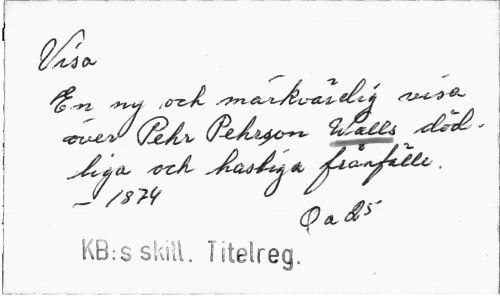 Visa
En ny och märkvärdig visa
över Pehr Pehrson Walls död-
liga och hastiga frånfälle.
- 1874
Qa 25
KB:s skill. Titelreg.